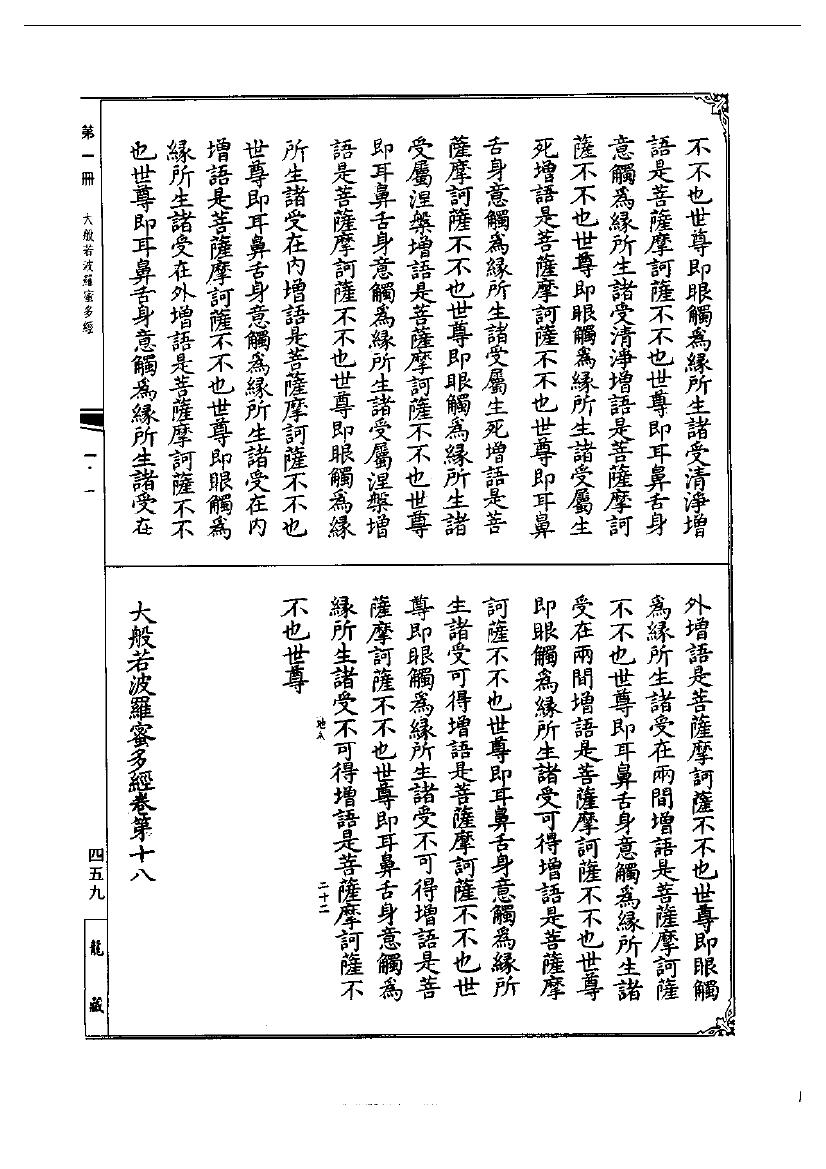 不不也世尊即眼觸爲緣所生諸受清淨增
語是菩薩摩訶薩不不也世尊即耳鼻舌身
意觸爲緣所生諸受清淨增語是菩薩摩訶
薩不不也世尊即眼觸爲緣所生諸受屬生
死增語是菩薩摩訶薩不不也世尊即耳鼻
舌身意觸爲緣所生諸受屬生死增語是菩
薩摩訶薩不不也世尊即眼觸爲緣所生諸
受屬涅槃增語是菩薩摩訶薩不不也世尊
即耳鼻舌身意觸爲緣所生諸受屬涅槃增
語是菩薩摩訶薩不不也世尊即眼觸爲緣
所生諸受在內增語是菩薩摩訶薩不不也
世尊即耳鼻舌身意觸爲緣所生諸受在內
增語是菩薩摩訶薩不不也世尊即眼觸爲
緣所生諸受在外增語是菩薩摩訶薩不不
也世尊即耳鼻舌身意觸爲緣所生諸受在
外增語是菩薩摩訶薩不不也世尊即眼觸
爲緣所生諸受在兩間增語是菩薩摩訶薩
不不也世尊即耳鼻舌身意觸爲緣所生諸
受在兩間增語是菩薩摩訶薩不不也世尊
即眼觸爲緣所生諸受可得增語是菩薩摩
訶薩不不也世尊即耳鼻舌身意觸爲緣所
生諸受可得增語是菩薩摩訶薩不不也世
尊即眼觸爲緣所生諸受不可得增語是菩
薩摩訶薩不不也世尊即耳鼻舌身意觸爲
緣所生諸受不可得增語是菩薩摩訶薩不
二十二
不也世尊
大般若波羅蜜多經卷第十八
第一冊 大般若波羅蜜多經
一·一
四五九
龍藏